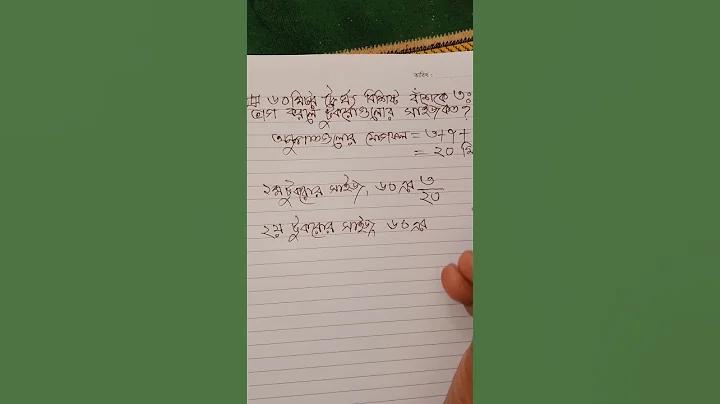 তারিখ :
# ৬০ মিটার দৈর্ঘ্য বিশিষ্ট বাঁশকে ৩ঃ
ভাগ করলে টুকরোগুলোর সাইজ কত ?
অনুপাতগুলোর যোগফল = ৩+৭+
= ২০ মি
১ম টুকরোর সাইজ, ৬০ এর ৩/২০
২য় টুকরোর সাইজ ৬০ এর